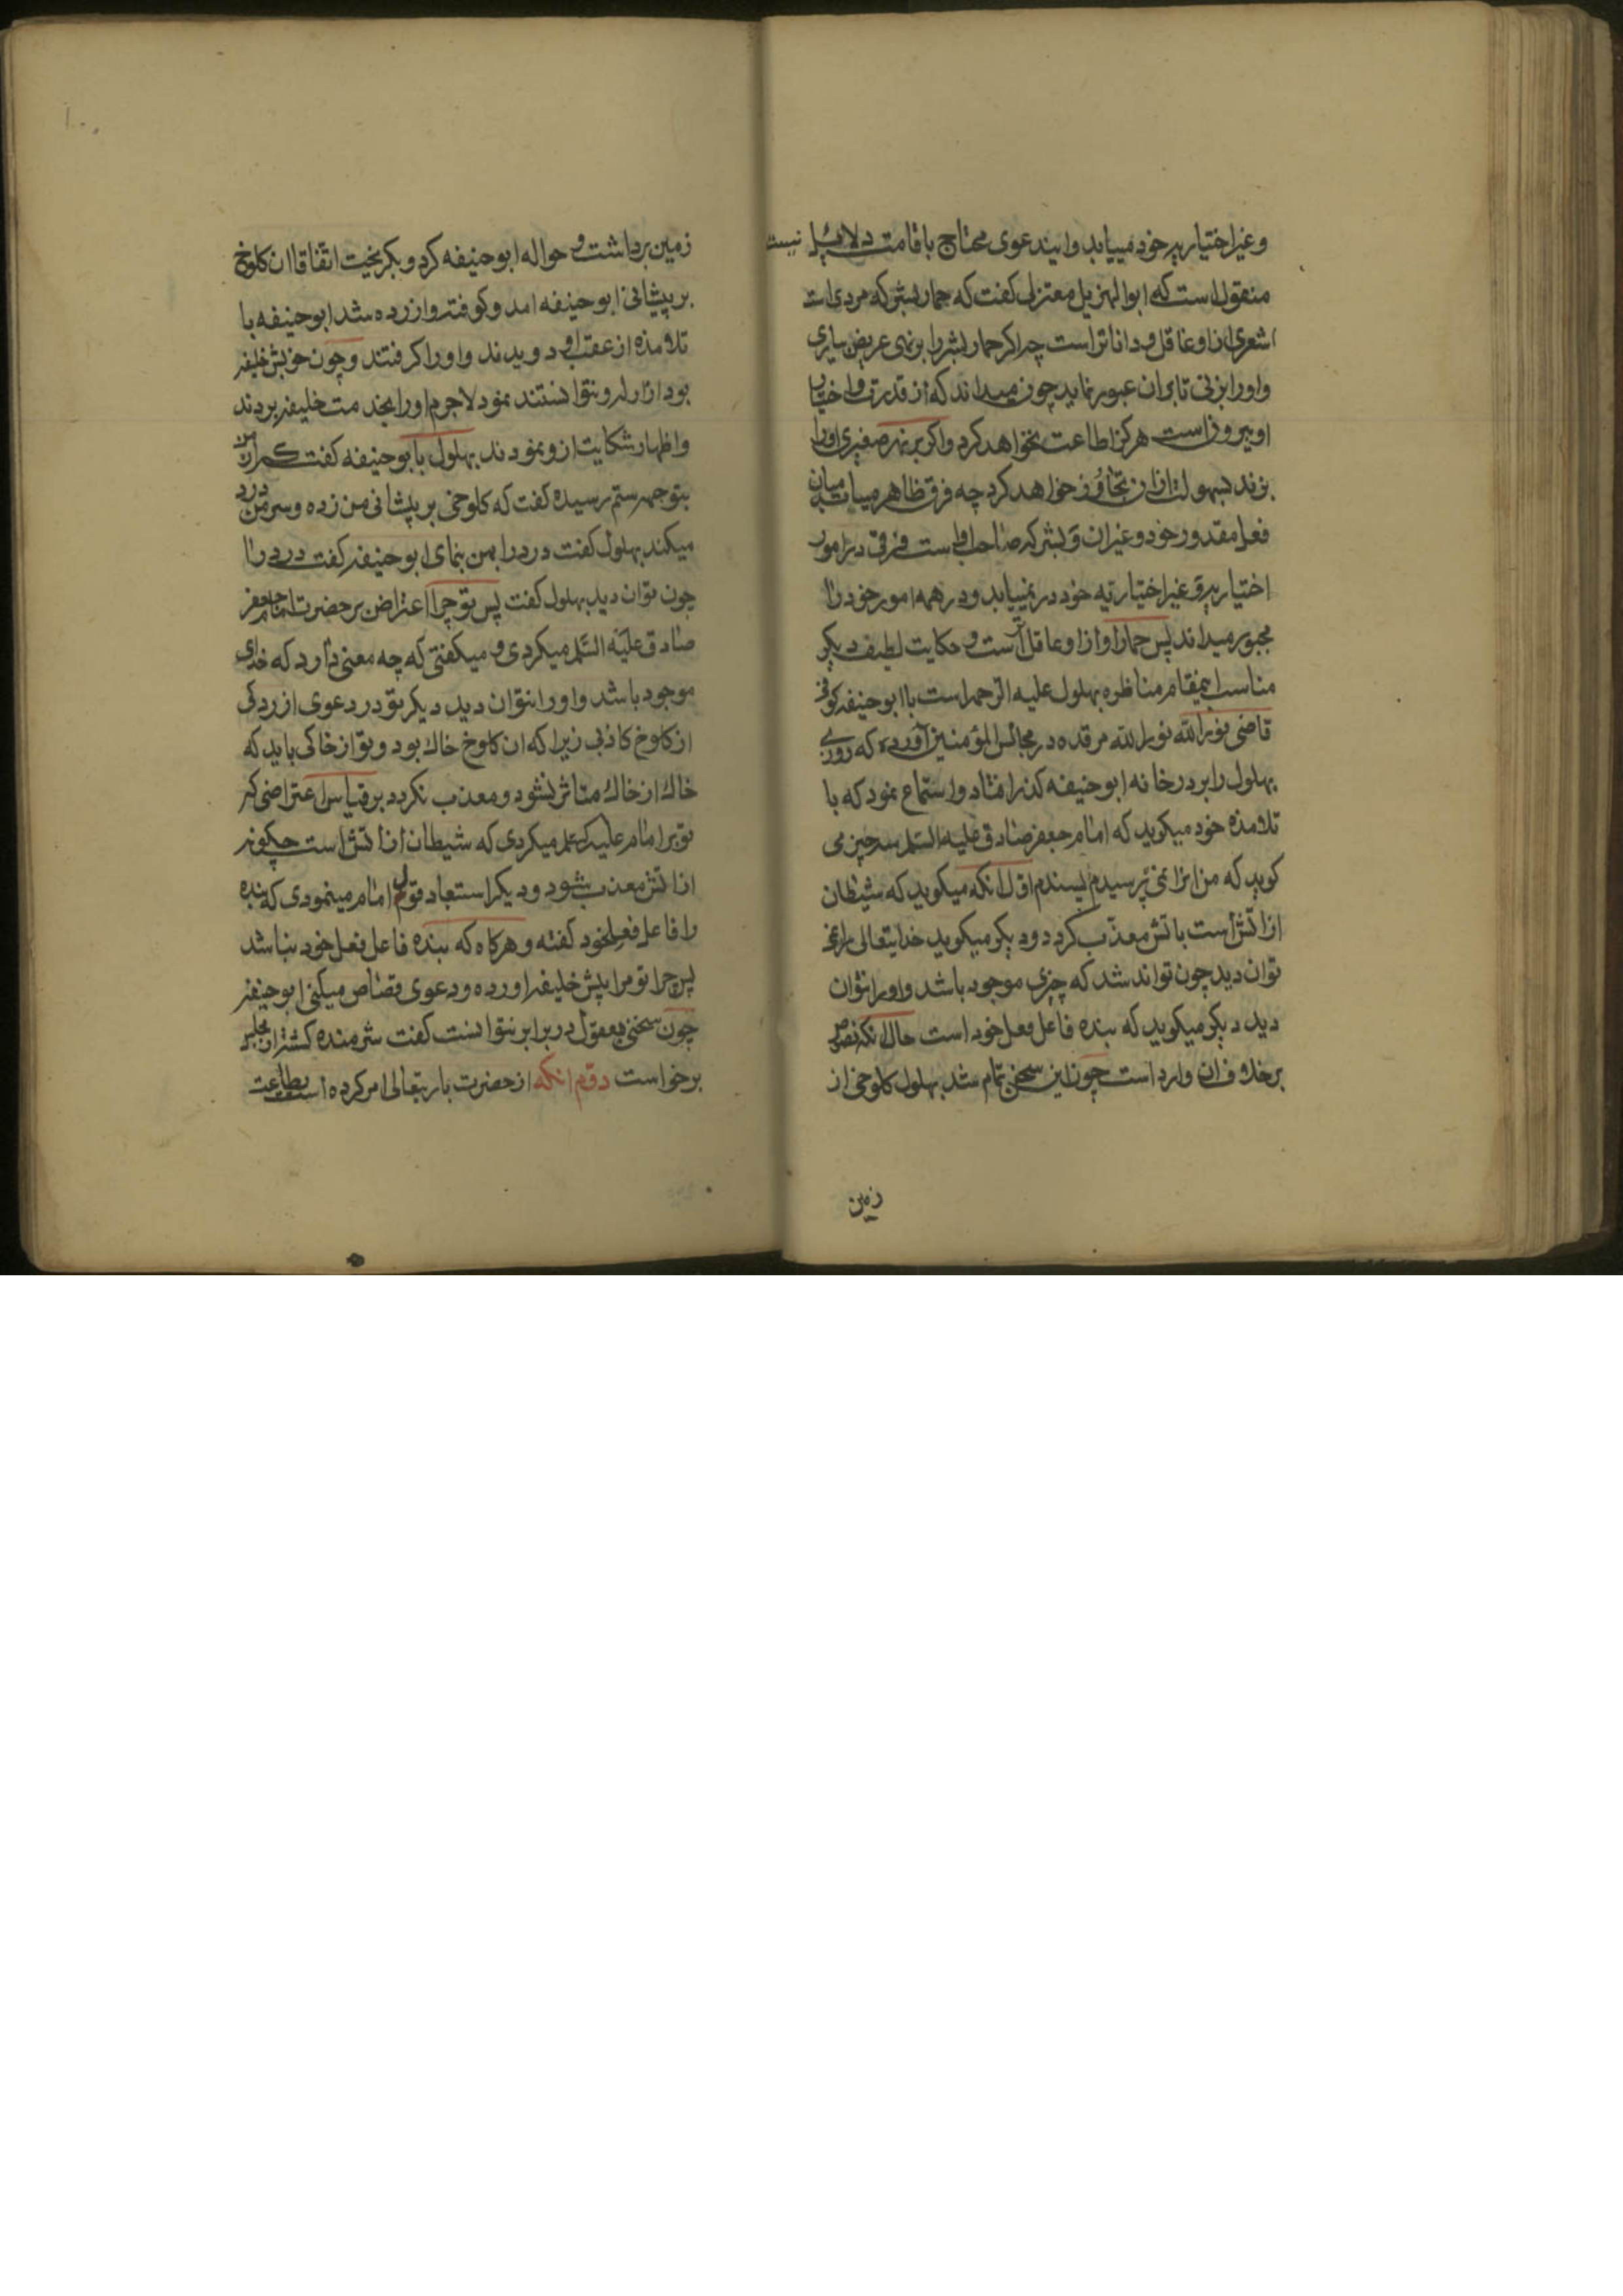 وغیر اختیاریه خود مییابد وایندعوی محتاج باقامت دلائل نیست
منقول است که ابوالهزیل معتزلی کفت که حمار بشر که مردی است
اشعری ازو عاقل و داناتر است چرا کر حمار بشر را بر نهری عریض بیاری
واورا بزنی تا بران عبور نماید چون میداند که از قدرت و اختیار
او بیرونست هرکز اطاعت نخواهد کرد واکر بر نهر صغیری اورا
بزند بسهولت ازان تجاوز خواهد کرد چه فرق ظاهر مییابد میان
فعل مقدور خود وغیر ان و بشر که صاحب اوست فرق در امور
اختیاریه وغیر اختیاریه خود در نمییابد ودر همه امور خود را
مجبور میداند پس حمار او ازاو عاقل تر است و حکایت لطیف دیکر
مناسب اینمقام مناظره بهلول علیه الرحمه است با ابوحنیفه کوفی
قاضی نورالله نورالله مرقده در مجالس المؤمنین آورده که روزی
بهلول را بر در خانه ابوحنیفه کذر افتاد واستماع نمود که با
تلامذه خود میکوید که امام جعفر صادق علیه السلم سه چیز می
کوید که من انرا نمی پسندم اول انکه میکوید که شیطان
از اتش است باتش معذب کردد ودیکر میکوید خدایتعالی را نمی
توان دید چون تواند شد که چیزی موجود باشد واورا نتوان
دید دیکر میکوید که بنده فاعل فعل خود است حال انکه نصوص
برخلاف ان وارد است چون این سخن تمام شد بهلول کلوخی از
زمین
زمین برداشت و حواله ابوحنیفه کرد وبکریخت اتفاقا ان کلوخ
بر پیشانی ابوحنیفه امد وکوفته وازرده شد ابوحنیفه با
تلامذه از عقب او دویدند واورا کرفتند وچون خویش خلیفه
بود ازار او نتوانستند نمود لاجرم اورا بخدمت خلیفه بردند
واظهار شکایت ازو نمودند بهلول با ابوحنیفه کفت که از من
بتو چه ستم رسیده کفت که کلوخی بر پیشانی من زده وسر من درد
میکند بهلول کفت درد را بمن بنمای ابوحنیفه کفت درد را
چون توان دید بهلول کفت پس تو چرا اعتراض بر حضرت امام جعفر
صادق علیه السلم میکردی و میکفتی که چه معنی دارد که خدای
موجود باشد واورا نتوان دید دیکر تو در دعوی ازردکی
از کلوخ کاذبی زیرا که ان کلوخ خاک بود وتو از خاکی باید که
خاک از خاک متاثر نشود ومعذب نکردد بر قیاس اعتراضی که
تو بر امام علیه السلم میکردی که شیطان از اتش است چکونه
از اتش معذب شود ودیکر استبعاد قول امام مینمودی که بنده
را فاعل فعل خود کفته وهرکاه که بنده فاعل فعل خود نباشد
پس چرا تو مرا پیش خلیفه اورده ودعوی قصاص میکنی ابوحنیفه
چون سخنی معقول در برابر نتوانست کفت شرمنده کشته از مجلس
برخواست دوم انکه از حضرت باریتعالی امر کرده است بطاعت